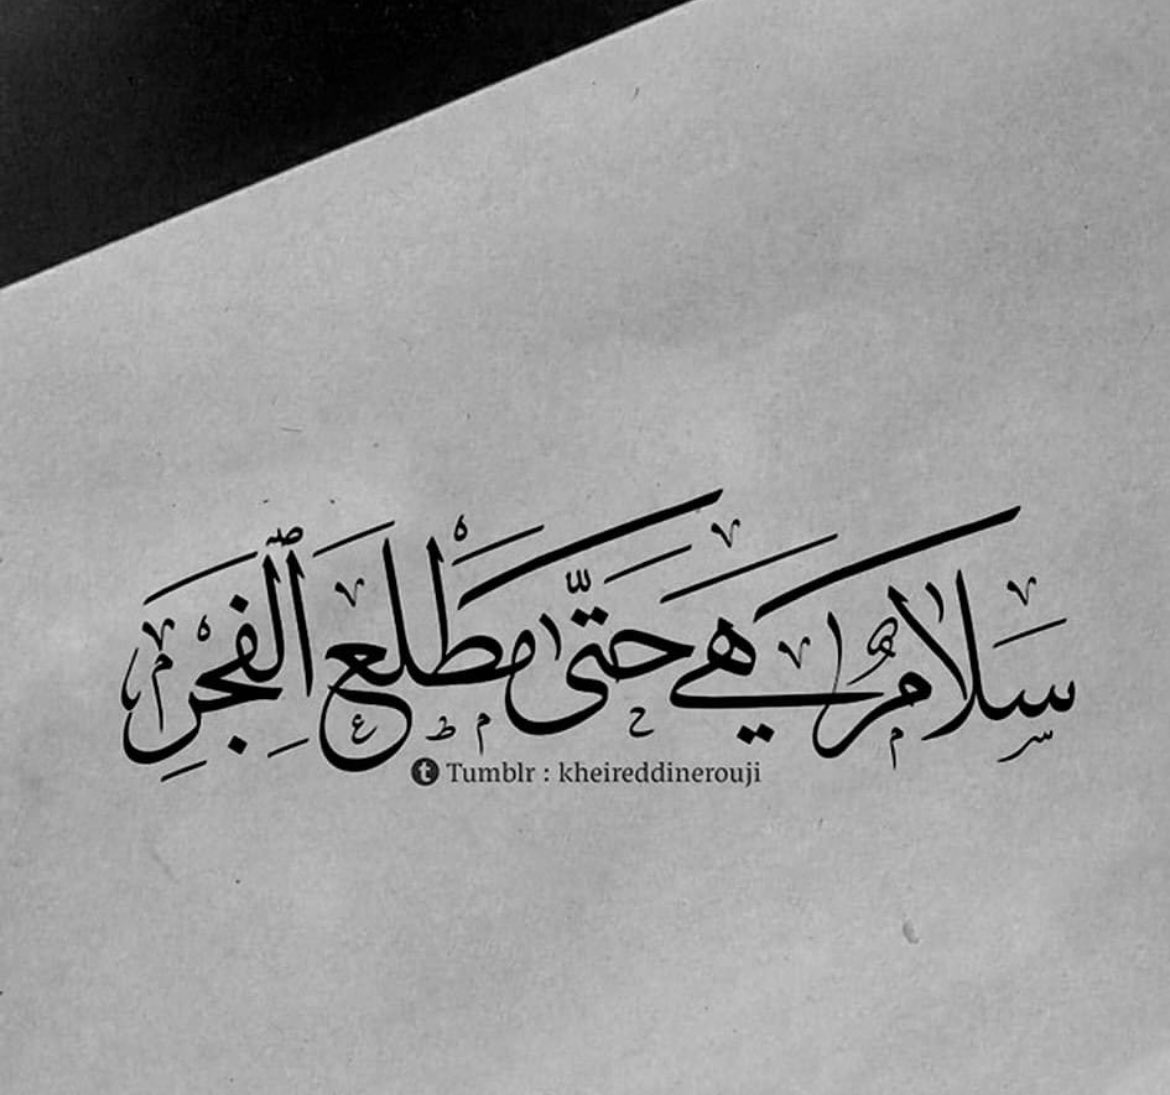 سَلَامٌ هِيَ حَتَّىٰ مَطْلَعِ ٱلْفَجْرِ
t Tumblr : kheireddinerouji